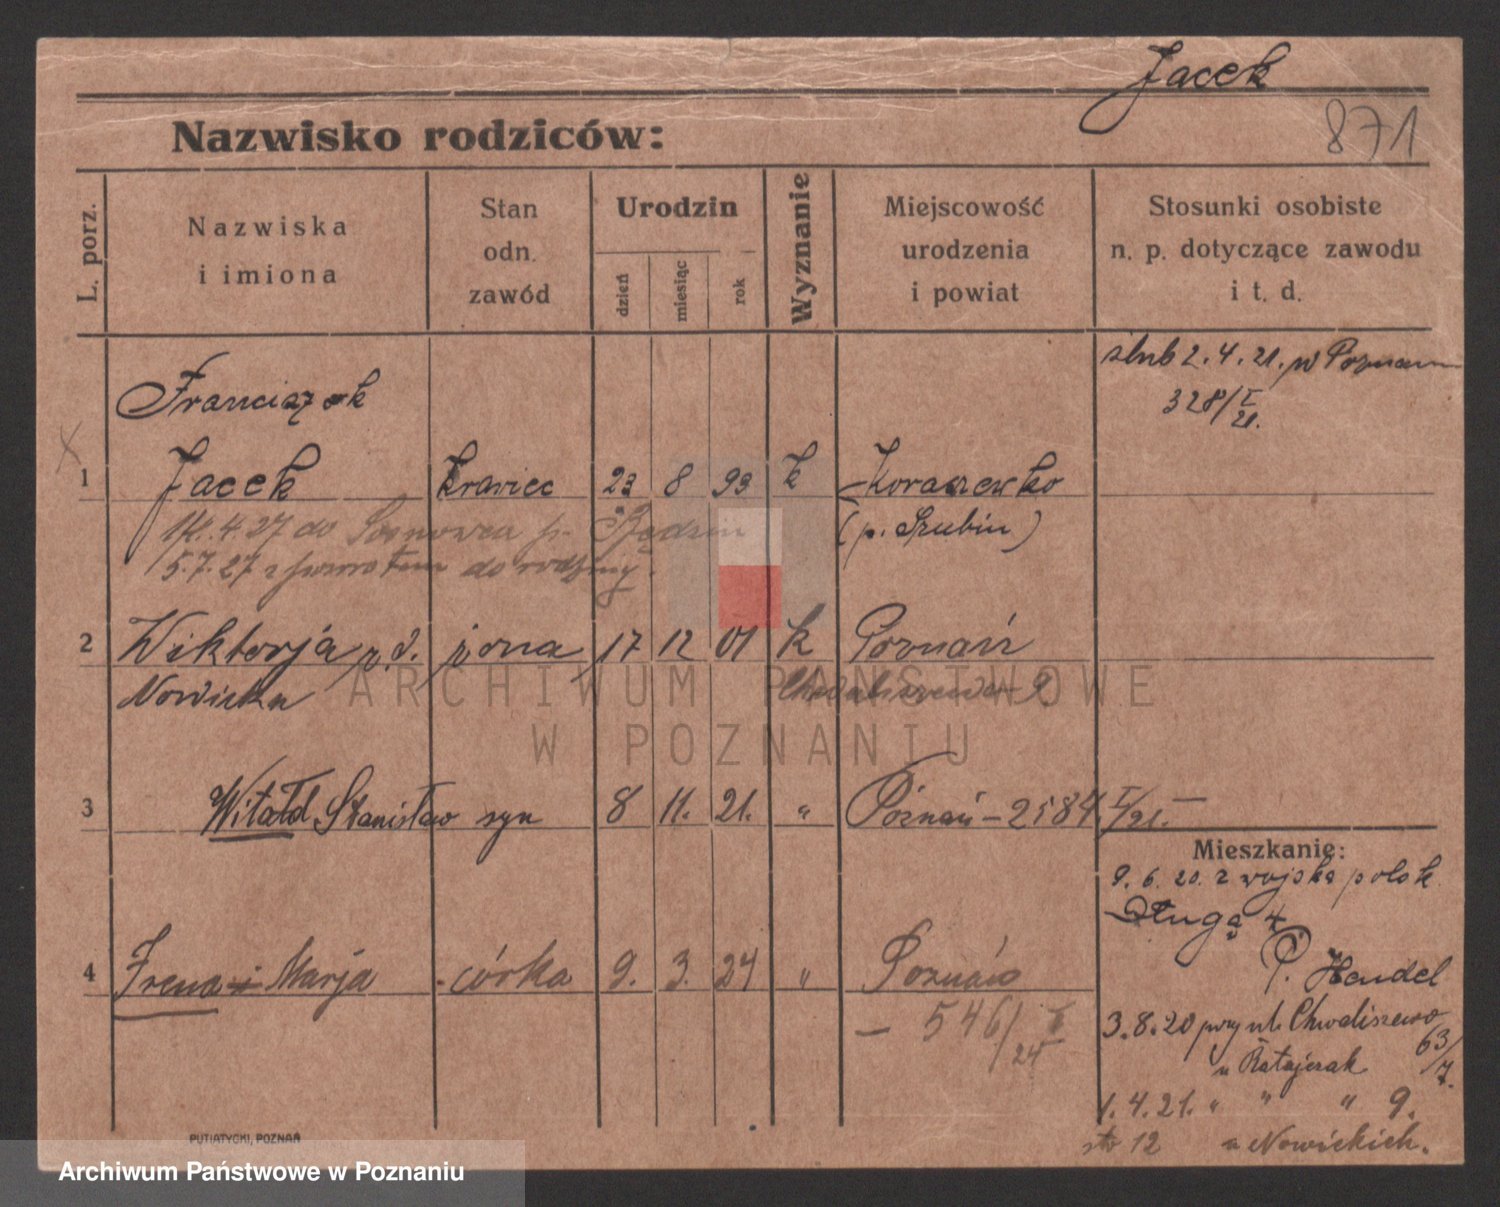 Jacek
871
Nazwisko rodziców:
L. porz.
Nazwiska
i imiona
Stan
odn.
zawód
Urodzin
dzień
miesiąc
rok
Wyznanie
Miejscowość
urodzenia
i powiat
Stosunki osobiste
n. p. dotyczące zawodu
i t. d.
ślub 2. 4. 21. w Poznaniu
328/I 21.
Franciszek
1 Jacek krawiec 23 8 93 k Koraszewko
(p. Szubin)
14.4.27 do Sosnowca p. Będzin
5.7.27 z powrotem do rodziny.
2 Wiktorja z d. żona 17 12 01 k Poznań
Nowicka Chwaliszewo 9.
ARCHIWUM PAŃSTWOWE
W POZNANIU
3 Witołd Stanisław syn 8 11. 21. " Poznań – 2584 I/21. –
Mieszkanie:
9. 6. 20. z wojska polsk.
Długa 4
P. Hendel
4 Irena i Marja - córka 9. 3. 24 " Poznań
– 546/I 24
3.8.20 przy ul. Chwaliszewo
63/7.
u Ratajczak
1.4.21. " " " 9.
12 u Nowickich.
PUTIATYCKI, POZNAŃ
Archiwum Państwowe w Poznaniu